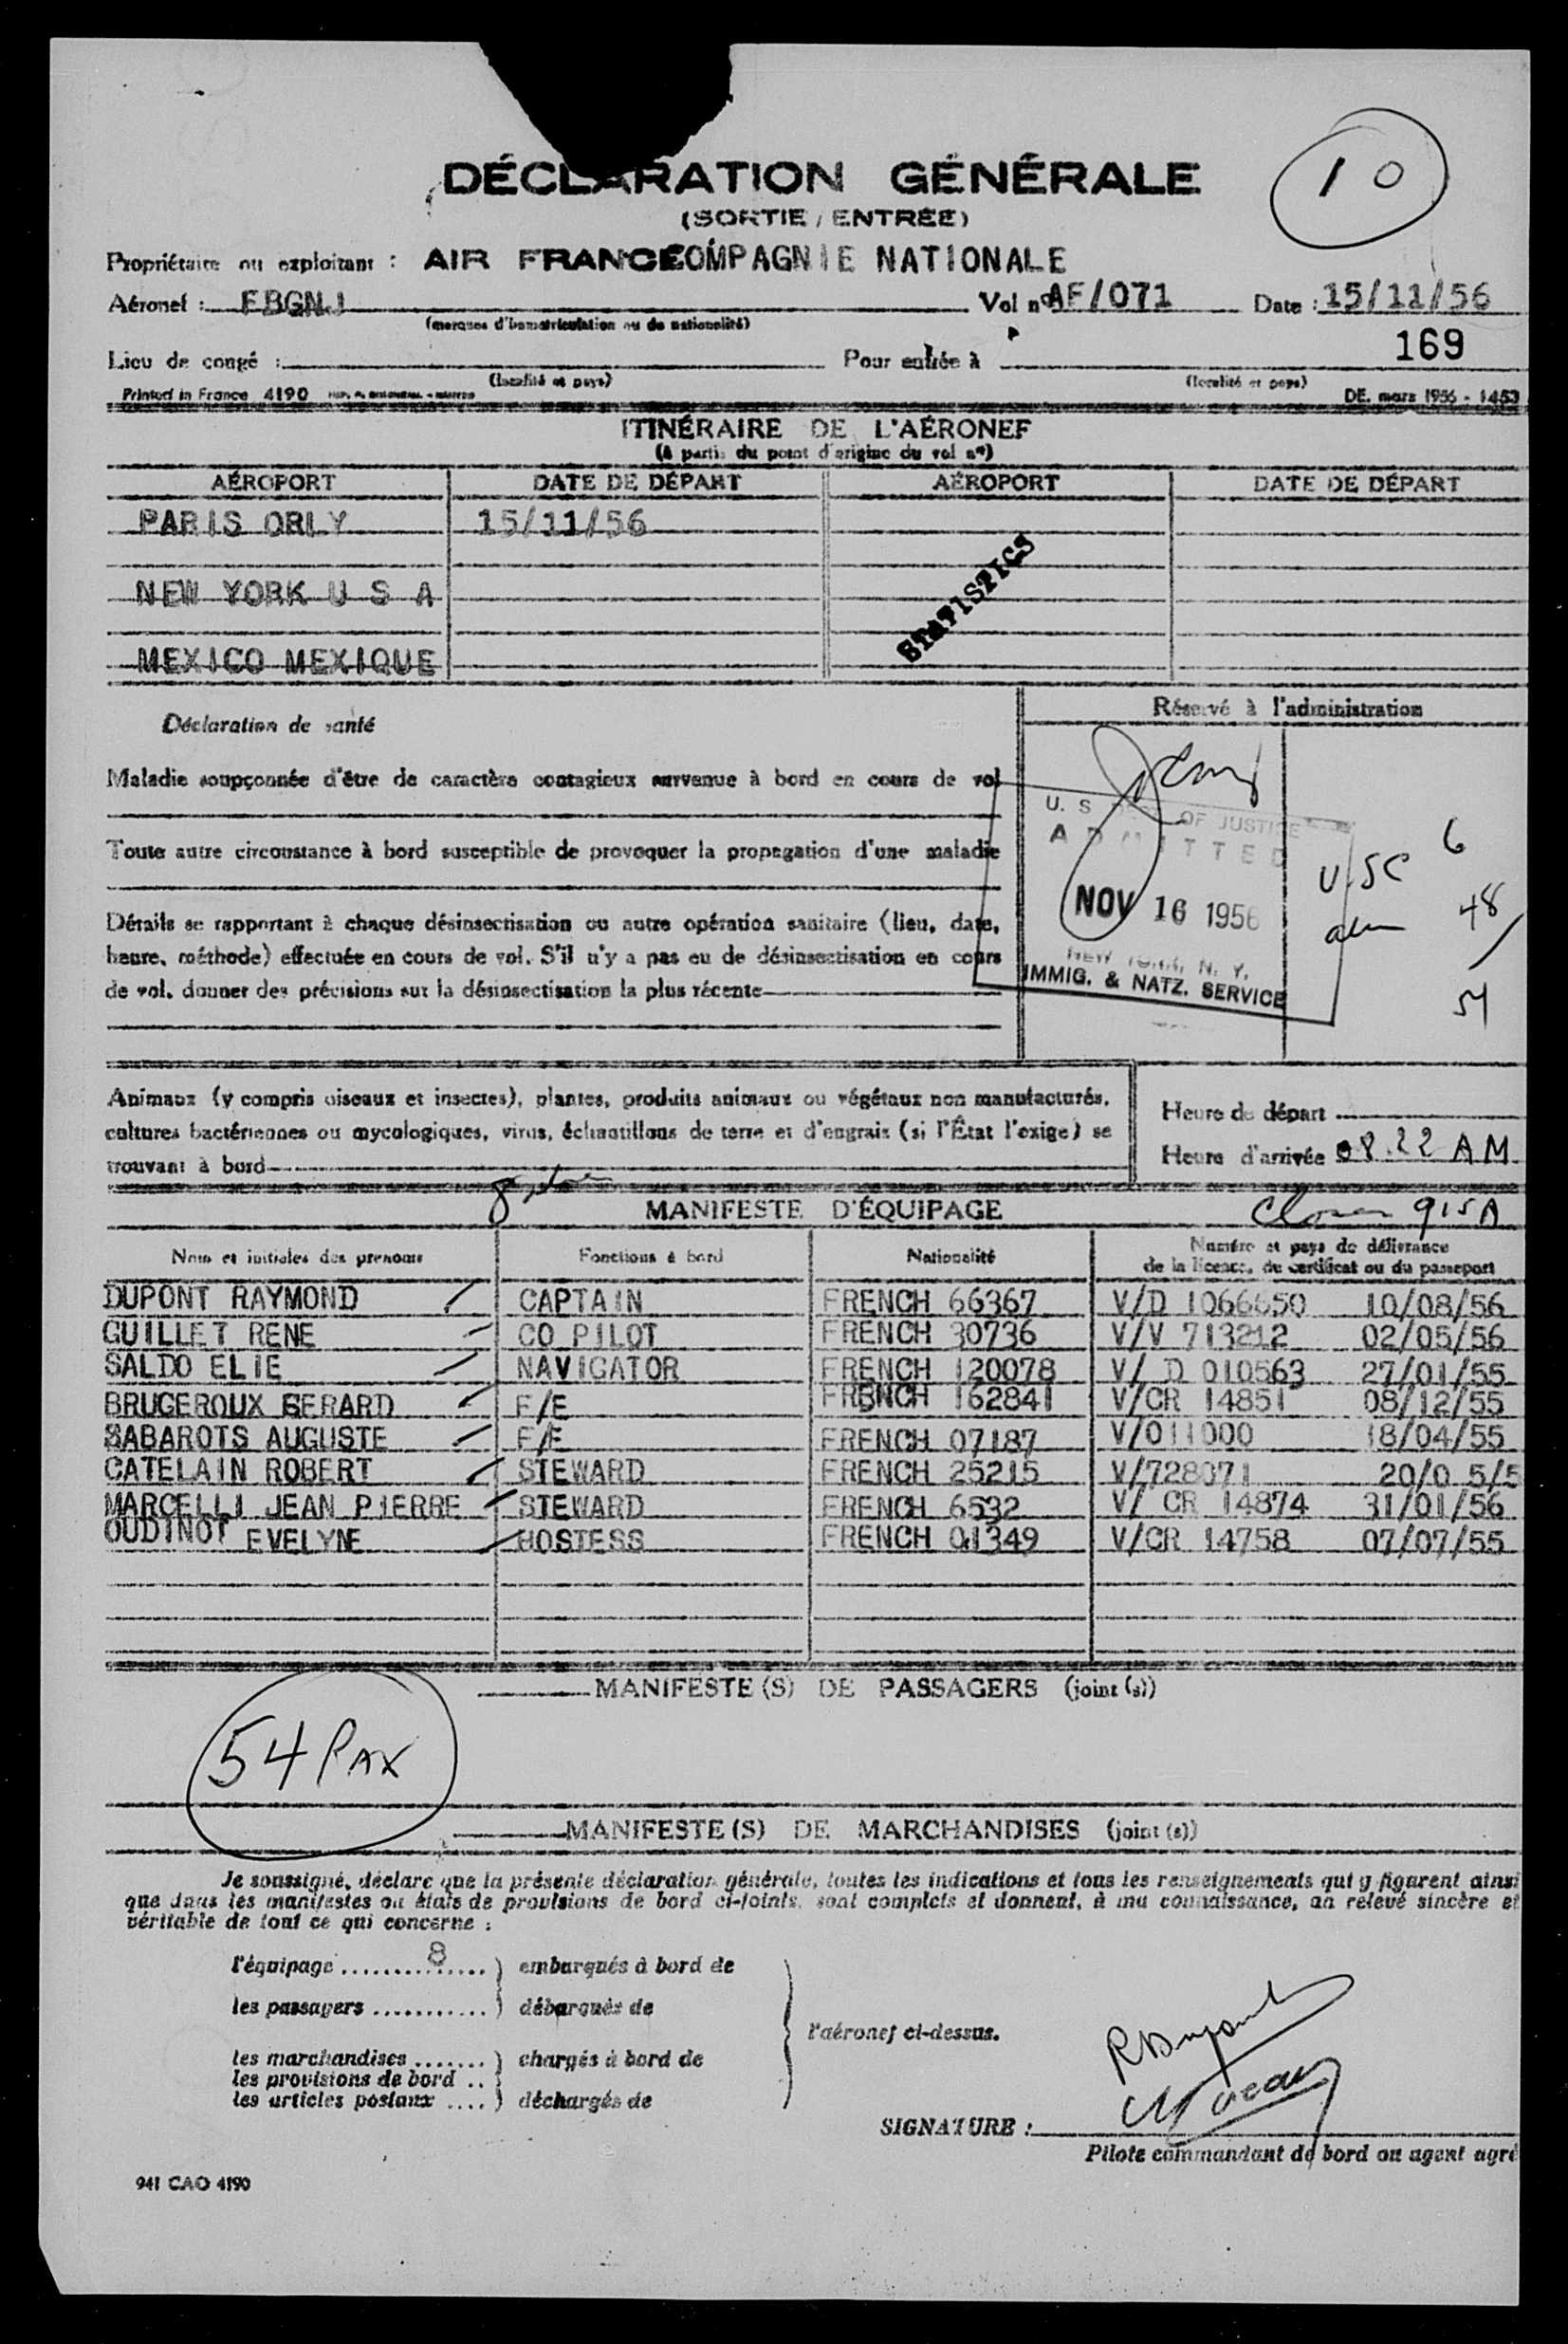 DÉCLARATION GÉNÉRALE
(SORTIE / ENTRÉE)
10
Propriétaire ou exploitant : AIR FRANCE COMPAGNIE NATIONALE
Aéronef : FBGNJ Vol nº AF/071 Date : 15/11/56
(marques d'immatriculation ou de nationalité)
169
Lieu de congé : Pour entrée à
(localité et pays) (localité et pays)
Printed in France 4190 DE. mars 1956 - 1453
ITINÉRAIRE DE L'AÉRONEF
(à partir du point d'origine du vol nº)
AÉROPORT DATE DE DÉPART AÉROPORT DATE DE DÉPART
PARIS ORLY 15/11/56
NEW YORK U S A
MEXICO MEXIQUE
STATISTICS
Déclaration de santé
Réservé à l'administration
Maladie soupçonnée d'être de caractère contagieux survenue à bord en cours de vol
Toute autre circonstance à bord susceptible de provoquer la propagation d'une maladie
Détails se rapportant à chaque désinsectisation ou autre opération sanitaire (lieu, date,
heure, méthode) effectuée en cours de vol. S'il n'y a pas eu de désinsectisation en cours
de vol, donner des précisions sur la désinsectisation la plus récente
U. S. OF JUSTICE
ADMITTED
NOV 16 1956
NEW YORK, N. Y.
IMMIG. & NATZ. SERVICE
USC 6
alien 48
54
Animaux (y compris oiseaux et insectes), plantes, produits animaux ou végétaux non manufacturés,
cultures bactériennes ou mycologiques, virus, échantillons de terre et d'engrais (si l'État l'exige) se
trouvant à bord
Heure de départ
Heure d'arrivée 08.22 AM
MANIFESTE D'ÉQUIPAGE
915A
Nom et initiales des prénoms Fonctions à bord Nationalité Numéro et pays de délivrance
de la licence, du certificat ou du passeport
DUPONT RAYMOND CAPTAIN FRENCH 66367 V/D 1066650 10/08/56
GUILLET RENE CO PILOT FRENCH 30736 V/V 713212 02/05/56
SALDO ELIE NAVIGATOR FRENCH 120078 V/ D 010563 27/01/55
BRUGEROUX GERARD F/E FRENCH 162841 V/CR 14851 08/12/55
SABAROTS AUGUSTE F/E FRENCH 07187 V/011000 18/04/55
CATELAIN ROBERT STEWARD FRENCH 25215 V/728071 20/0 5/5
MARCELLI JEAN PIERRE STEWARD FRENCH 6532 V/ CR 14874 31/01/56
OUDINOT EVELYNE HOSTESS FRENCH 01349 V/CR 14758 07/07/55
MANIFESTE(S) DE PASSAGERS (joint(s))
54 PAX
MANIFESTE(S) DE MARCHANDISES (joint(s))
Je soussigné, déclare que la présente déclaration générale, toutes les indications et tous les renseignements qui y figurent ainsi
que dans les manifestes ou états de provisions de bord ci-joints, sont complets et donnent, à ma connaissance, un relevé sincère et
véritable de tout ce qui concerne :
l'équipage .......8....... ) embarqués à bord de
les passagers ........... ) débarqués de
l'aéronef ci-dessus.
les marchandises ....... ) chargés à bord de
les provisions de bord ..
les articles postaux .... ) déchargés de
R Dupont
SIGNATURE :
Pilote commandant de bord ou agent agré
941 CAO 4190